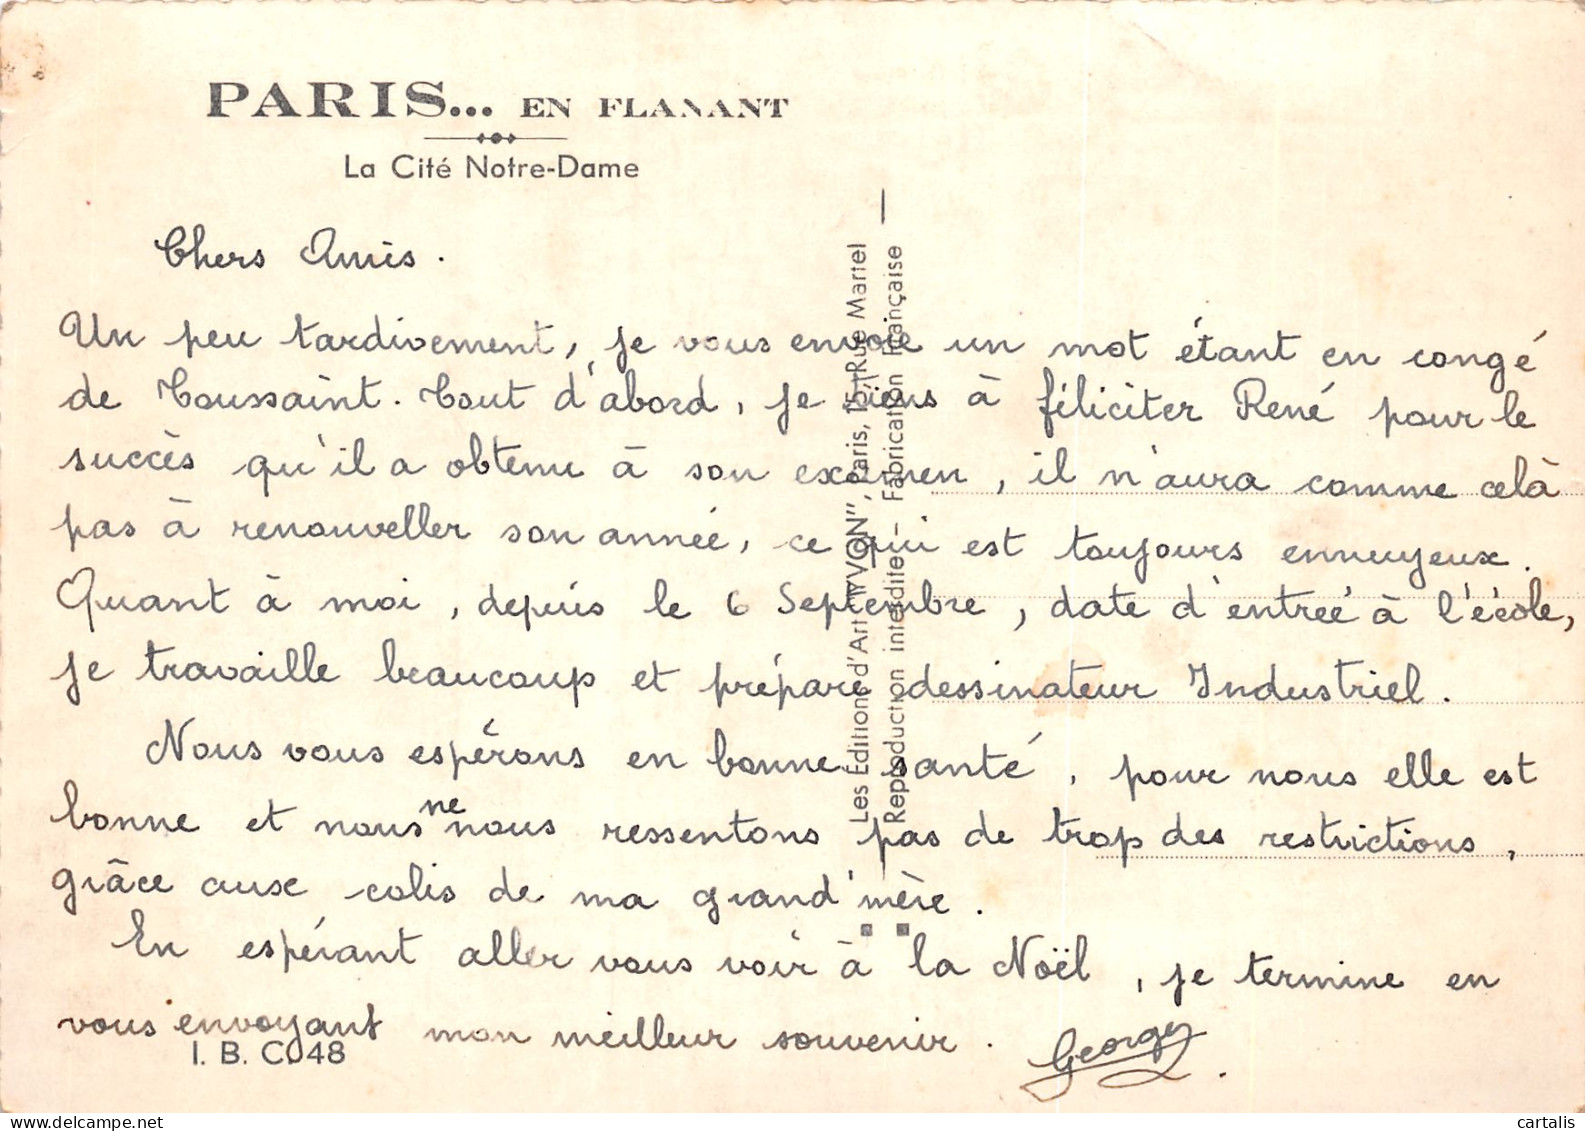 PARIS... EN FLANANT
La Cité Notre-Dame
Chers Amis.
Un peu tardivement, je vous envoie un mot étant en congé
de Toussaint. Tout d'abord, je tiens à féliciter René pour le
succès qu'il a obtenu à son examen, il n'aura comme celà
pas à renouveller son année, ce qui est toujours ennuyeux.
Quant à moi, depuis le 6 Septembre, date d'entrée à l'école,
je travaille beaucoup et prépare dessinateur Industriel.
Nous vous espérons en bonne santé, pour nous elle est
bonne et nous ne nous ressentons pas de trop des restrictions,
grâce aux colis de ma grand'mère.
En espérant aller vous voir à la Noël, je termine en
vous envoyant mon meilleur souvenir. Georgy
I. B. C. 48
Les Editions d'Art "YVON", Paris, 15, Rue Martel
Reproduction interdite - Fabrication Française
cartalis | delcampe.net